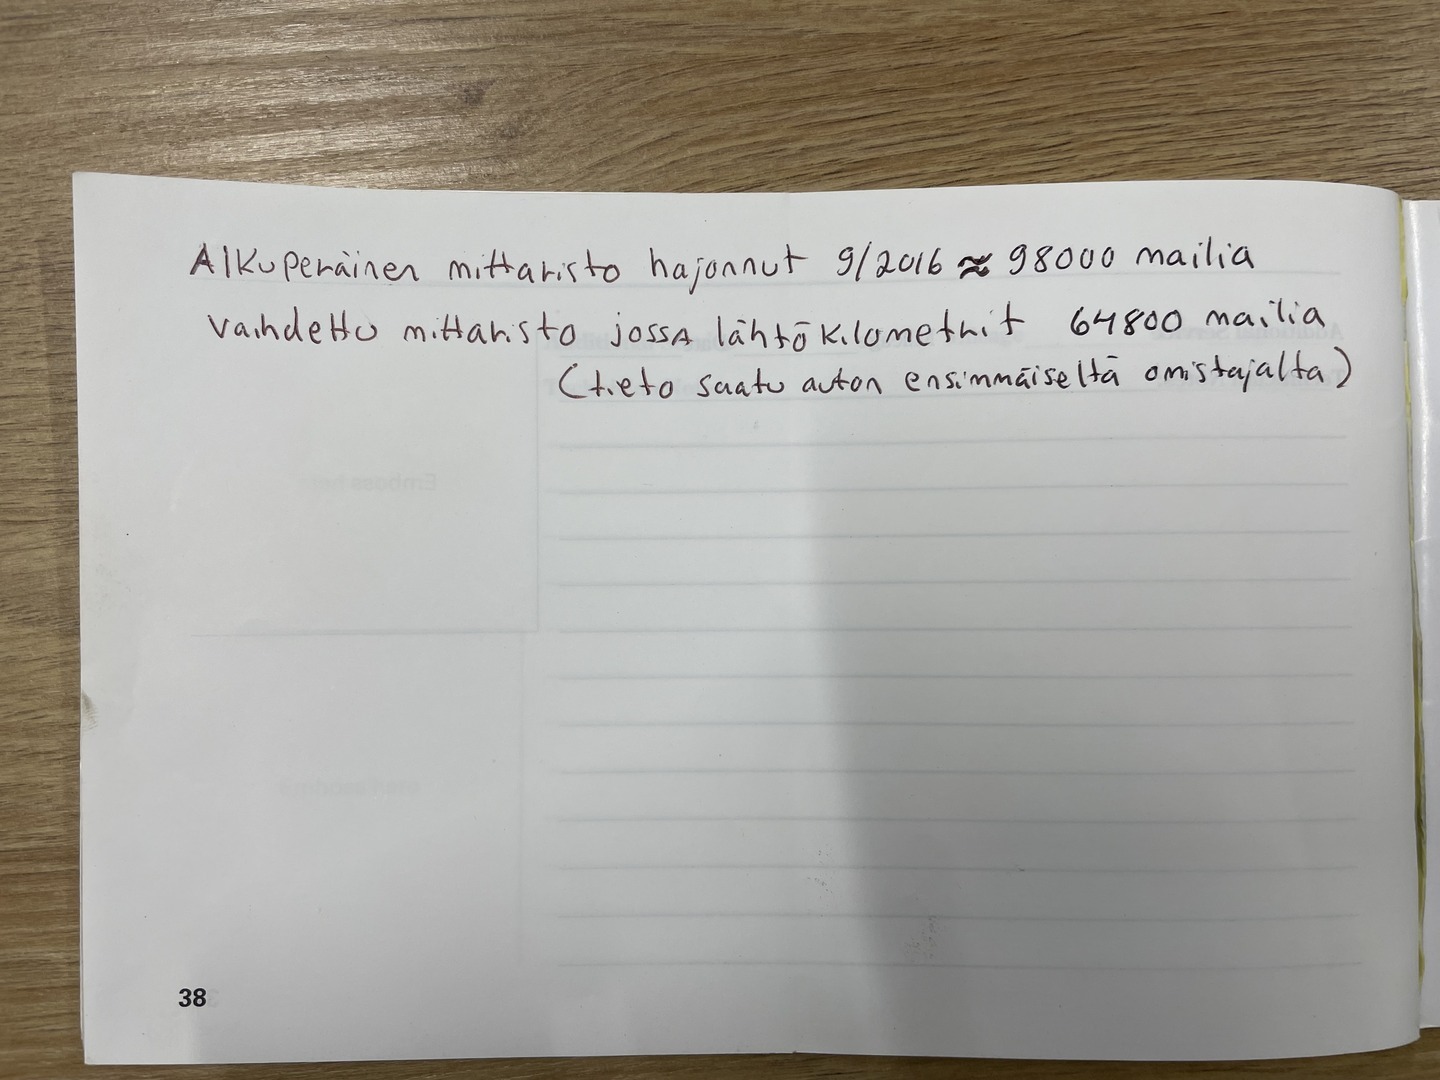 Alkuperäinen mittaristo hajonnut 9/2016 ≈ 98000 mailia
Vaihdettu mittaristo jossa lähtökilometrit 64800 mailia
(tieto saatu auton ensimmäiseltä omistajalta)
38